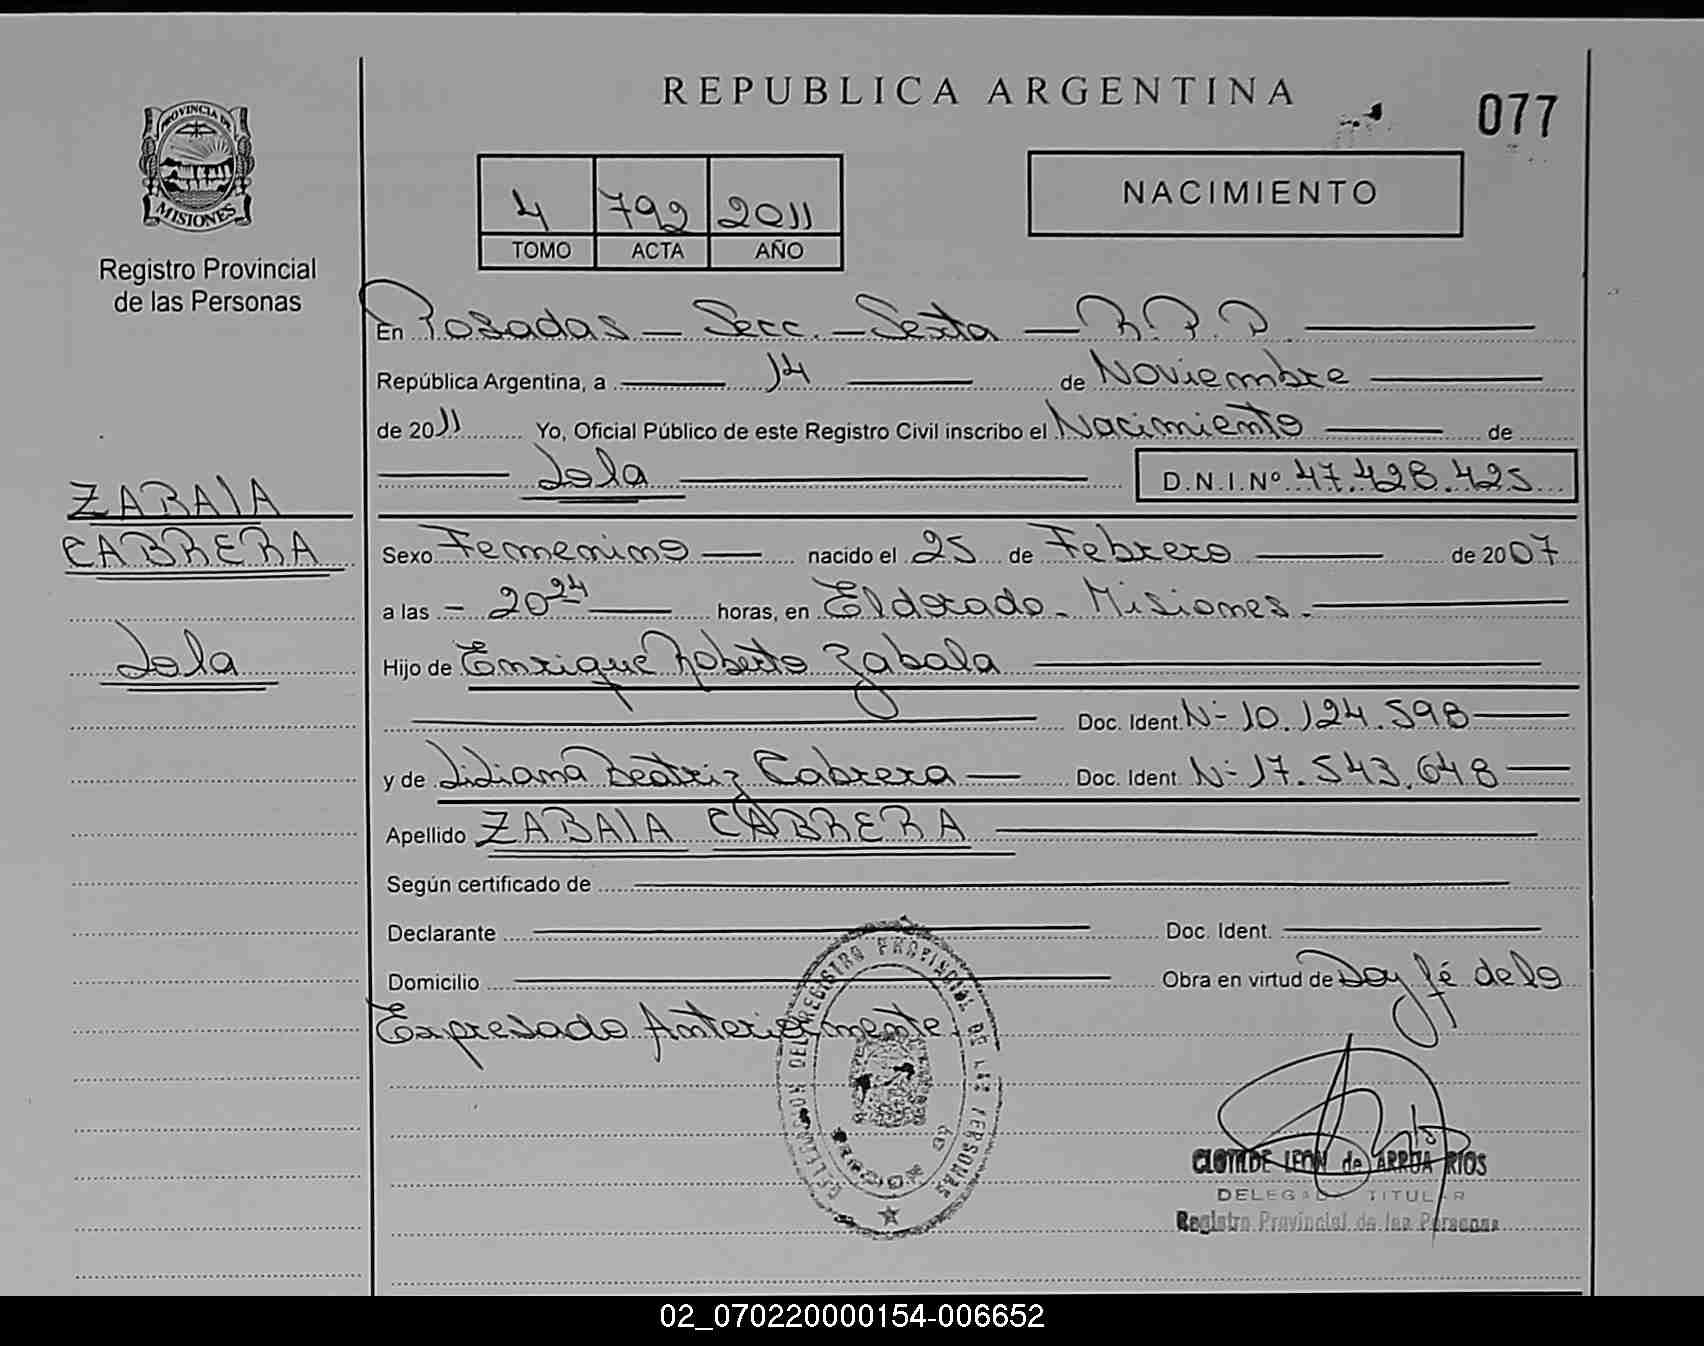 REPUBLICA ARGENTINA
077
PROVINCIA DE
MISIONES
Registro Provincial
de las Personas
4 792 2011
TOMO ACTA AÑO
NACIMIENTO
En Posadas — Secc. — Sexta — R.P.P.
República Argentina, a 14 de Noviembre
de 2011 Yo, Oficial Público de este Registro Civil inscribo el Nacimiento de
Lola D.N.I.Nº 47.428.425
ZABALA
CABRERA
Lola
Sexo Femenino nacido el 25 de Febrero de 2007
a las - 20 24 horas, en Eldorado - Misiones.
Hijo de Enrique Roberto Zabala
Doc. Ident. Nº 10.124.598
y de Liliana Beatriz Cabrera Doc. Ident. Nº 17.543.648
Apellido ZABALA CABRERA
Según certificado de
Declarante Doc. Ident.
Domicilio Obra en virtud de Doy fé de lo
Expresado Anteriormente.
DEL REGISTRO PROVINCIAL DE LAS PERSONAS
CLOTILDE LEON de ARRUA RIOS
DELEGADA TITULAR
Registro Provincial de las Personas
02_070220000154-006652